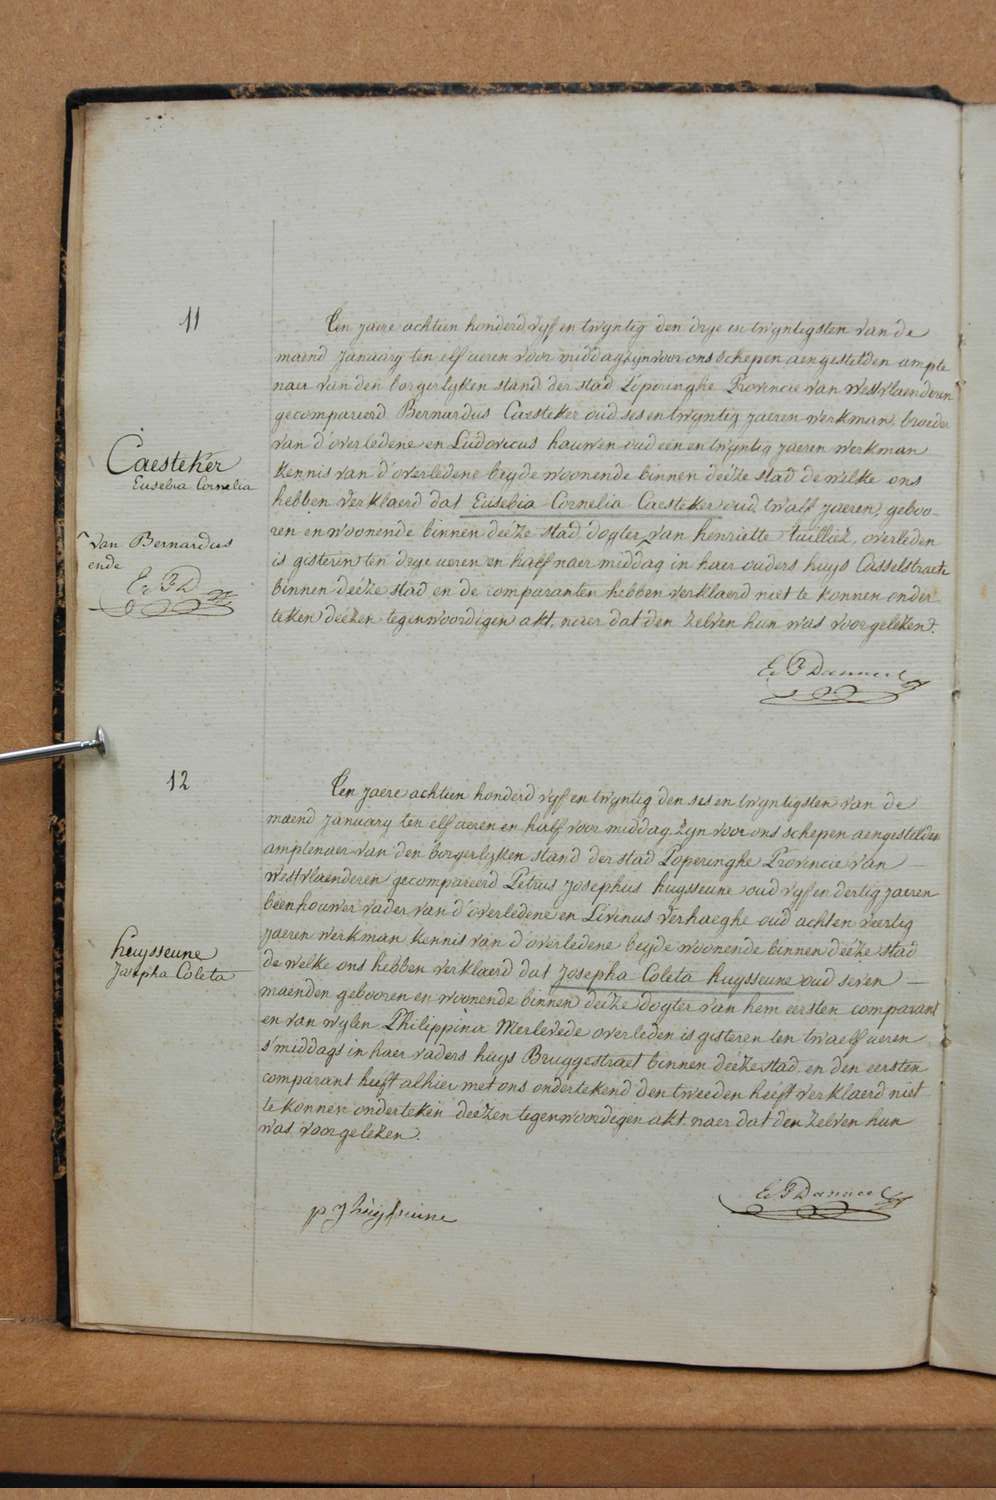 11
Ten jaere achtien honderd vyf en twyntig den drye en twyntigsten van de
maend January ten elf ueren voor middag zyn voor ons schepen aengestelden ampte
naer van den borgerlyken stand der stad Poperinghe Provincie van Westvlaenderen
gecompareerd Bernardus Caesteker oud ses en twyntig jaeren werkman, broeder
van d'overledene en Ludovicus hauwen oud een en twyntig jaeren werkman
kennis van d'overledene beyde woonende binnen deeze stad de welke ons
hebben verklaerd dat Eusebia Cornelia Caesteker oud twalf jaeren, geboo-
ren en woonende binnen deeze stad dogter van henriette tuilliez, overleden
is gisteren ten drye ueren en half naer middag in haer ouders huys Casselstraete
binnen deeze stad en de comparanten hebben verklaerd niet te konnen onder
teken deezen tegenwoordigen akt, naer dat den zelven hun was voorgelezen.
Caesteker
Eusebia Cornelia
van Bernardus
ende
12
Ten jaere achtien honderd vyf en twyntig den ses en twyntigsten van de
maend January ten elf ueren en half voor middag zyn voor ons schepen aengestelden
amptenaer van den borgerlyken stand der stad Poperinghe Provincie van
Westvlaenderen gecompareerd Petrus Josephus huysseune oud vyf en dertig jaeren
beenhouwer vader van d'overledene en Livinus Verhaeghe oud acht en veertig
jaeren werkman kennis van d'overledene beyde woonende binnen deeze stad
de welke ons hebben verklaerd dat Josepha Coleta huysseune oud seven
maenden gebooren en woonende binnen deeze dogter van hem eersten comparant
en van wylen Philippina Merlevede overleden is gisteren ten twaelf ueren
s'middags in haer vaders huys Bruggestraet binnen deeze stad en den eersten
comparant heeft alhier met ons ondertekend den tweeden heeft verklaerd niet
te konnen onderteken deezen tegenwoordigen akt naer dat den zelven hun
was voorgelezen.
huysseune
Josepha Coleta
p J huysseune